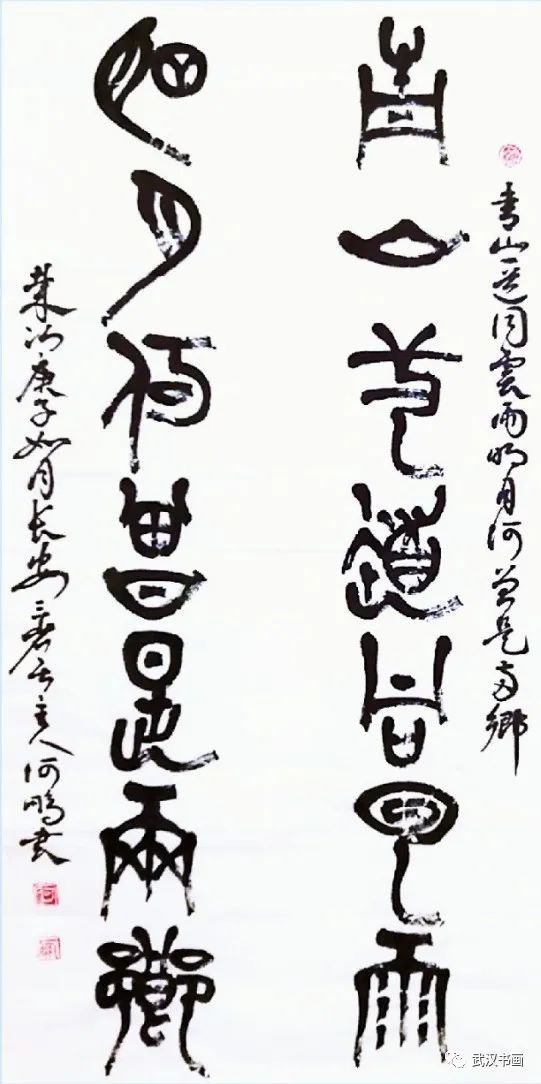 青山一道同雲雨明月何曾是两鄉
青山一道同云雨
明月何曾是兩鄉
歲次庚子如月长安居主人何鹏書
武汉书画